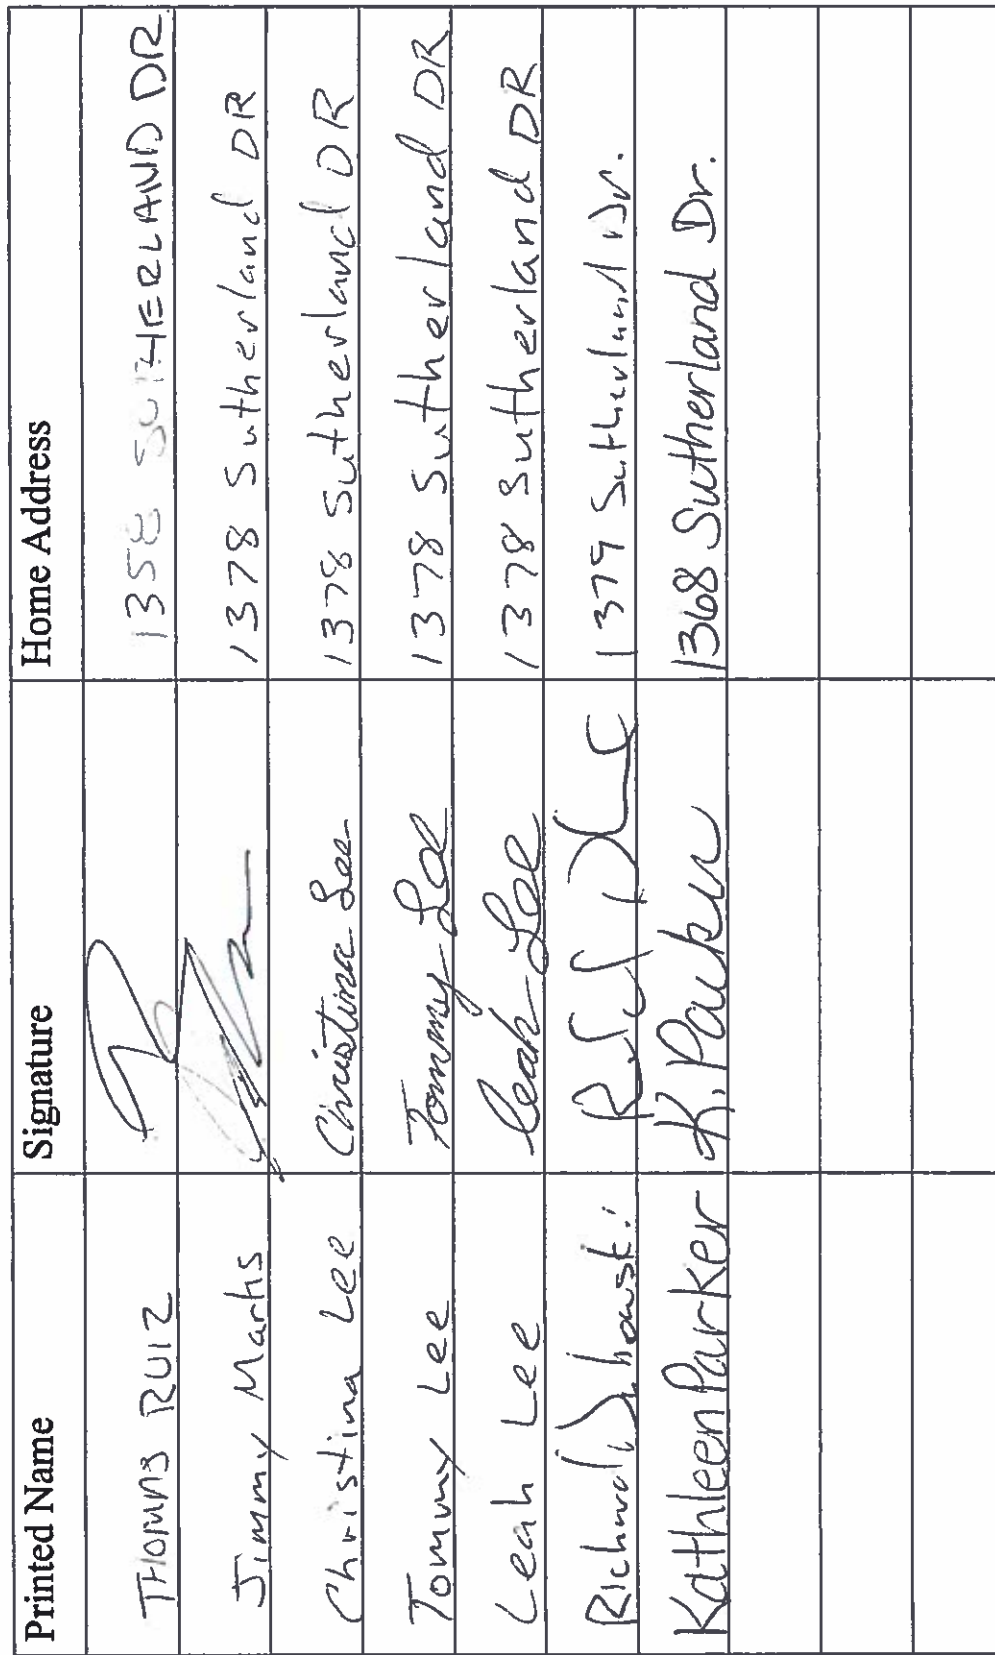 Printed Name Signature Home Address
THOMAS RUIZ 1358 SUTHERLAND DR.
Jimmy Marks 1378 Sutherland DR
Christina Lee Christina Lee 1378 Sutherland DR
Tommy Lee Tommy Lee 1378 Sutherland DR
Leah Lee Leah Lee 1378 Sutherland DR
Richard 1379 Sutherland Dr.
Kathleen Parker K. Parker 1368 Sutherland Dr.